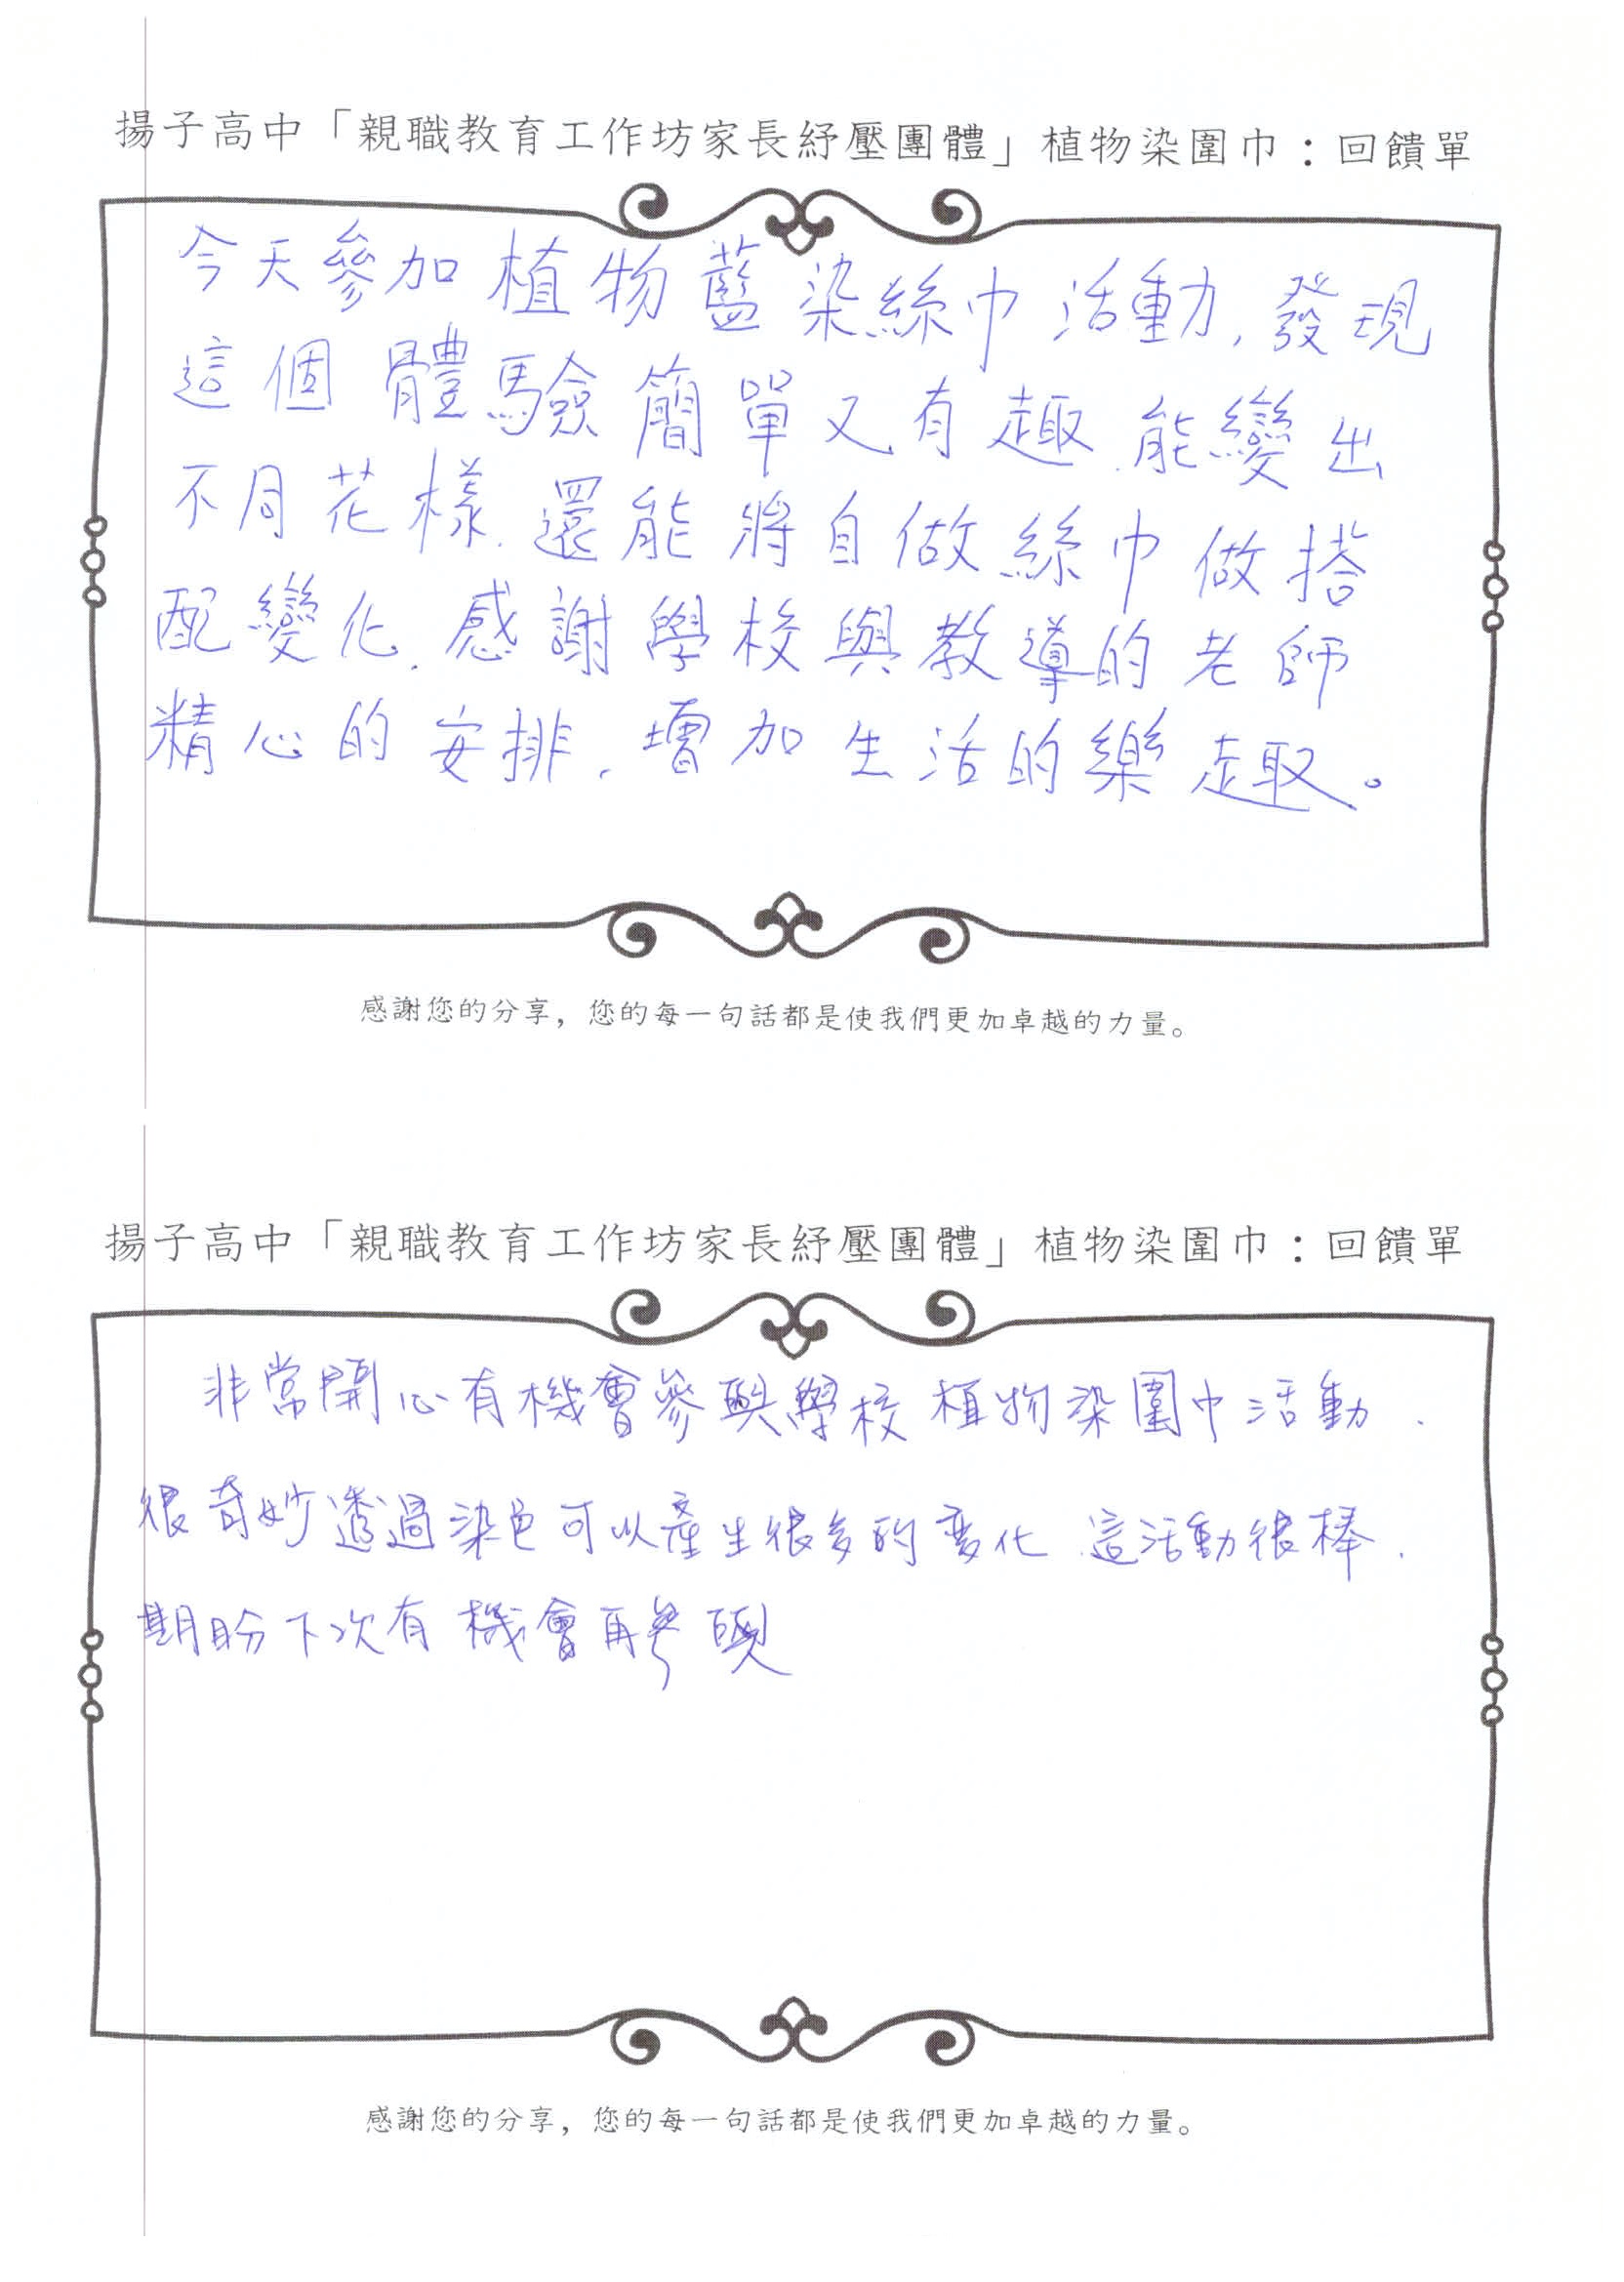 揚子高中「親職教育工作坊家長紓壓團體」植物染圍巾：回饋單
今天參加植物藍染絲巾活動，發現
這個體驗簡單又有趣，能變出
不同花樣，還能將自做絲巾做搭
配變化，感謝學校與教導的老師
精心的安排，增加生活的樂趣。
感謝您的分享，您的每一句話都是使我們更加卓越的力量。
揚子高中「親職教育工作坊家長紓壓團體」植物染圍巾：回饋單
非常開心有機會參與學校植物染圍巾活動，
很奇妙透過染色可以產生很多的變化，這活動很棒，
期盼下次有機會再參與
感謝您的分享，您的每一句話都是使我們更加卓越的力量。